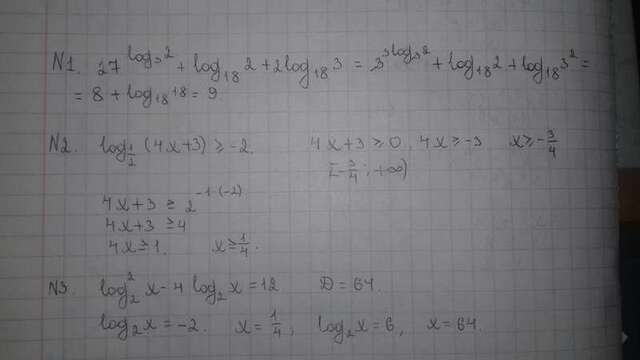 N1. 27^(log₃2) + log₁₈2 + 2log₁₈3 = 3^(3log₃2) + log₁₈2 + log₁₈3² =
= 8 + log₁₈18 = 9
N2. log_(1/2) (4x+3) ≥ -2. 4x+3 ≥ 0, 4x ≥ -3 x ≥ -3/4
[-3/4; +∞)
4x+3 ≥ 2^(-1·(-2))
4x+3 ≥ 4
4x ≥ 1. x ≥ 1/4.
N3. log₂²x - 4 log₂x = 12 D = 64.
log₂x = -2. x = 1/4; log₂x = 6, x = 64.